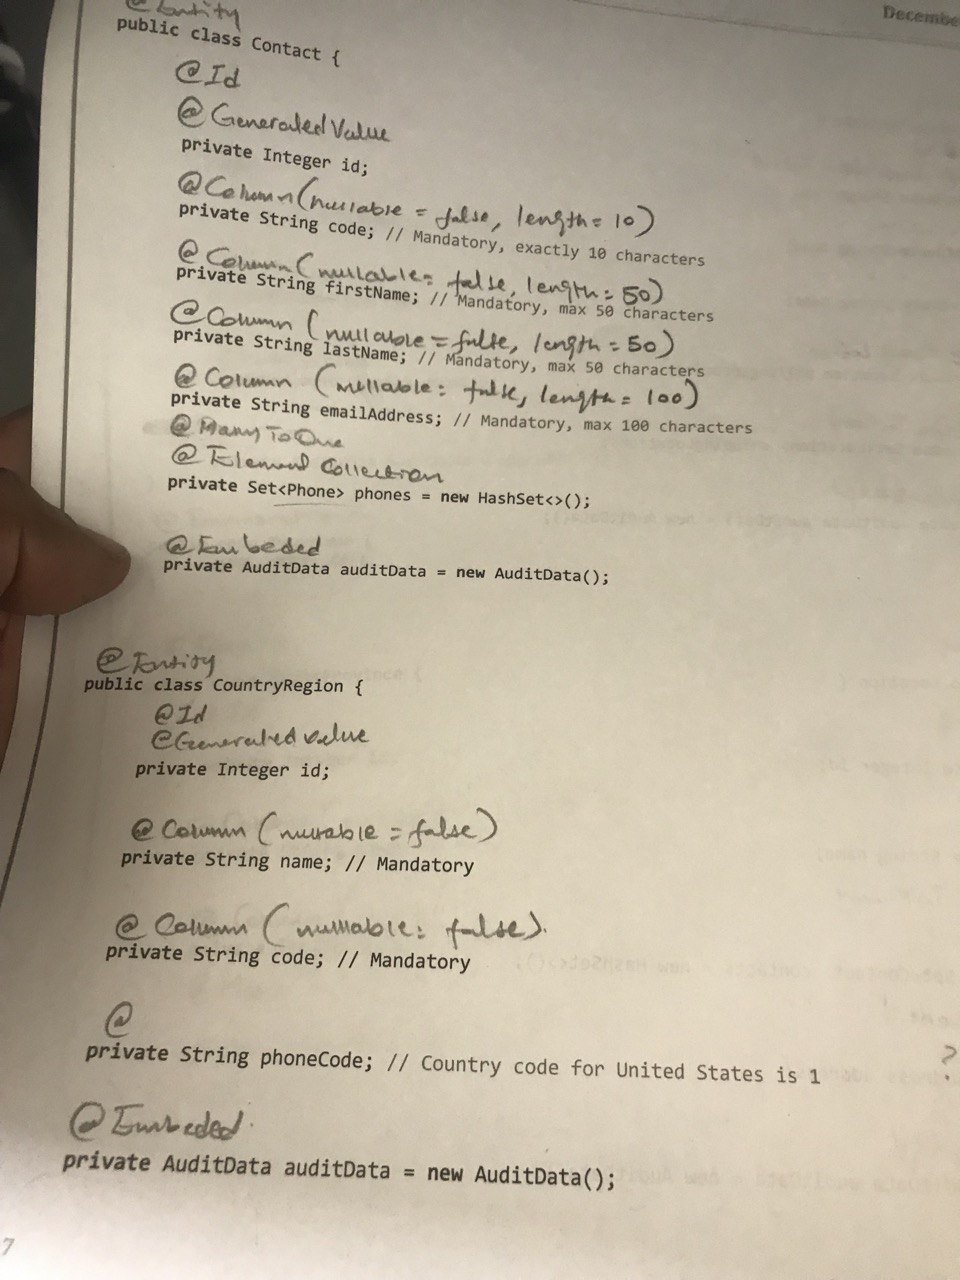 Decembe
@Entity
public class Contact {
@Id
@Generated Value
private Integer id;
@Column(nullable = false, length = 10)
private String code; // Mandatory, exactly 10 characters
@Column(nullable = false, length = 50)
private String firstName; // Mandatory, max 50 characters
@Column (nullable = false, length = 50)
private String lastName; // Mandatory, max 50 characters
@Column (nullable = false, length = 100)
private String emailAddress; // Mandatory, max 100 characters
@Many To One
@Element Collection
private Set<Phone> phones = new HashSet<>();
@Embeded
private AuditData auditData = new AuditData();
@Entity
public class CountryRegion {
@Id
@Generated value
private Integer id;
@Column (nullable = false)
private String name; // Mandatory
@Column (nullable = false).
private String code; // Mandatory
@
private String phoneCode; // Country code for United States is 1
?
@Embeded.
private AuditData auditData = new AuditData();
7